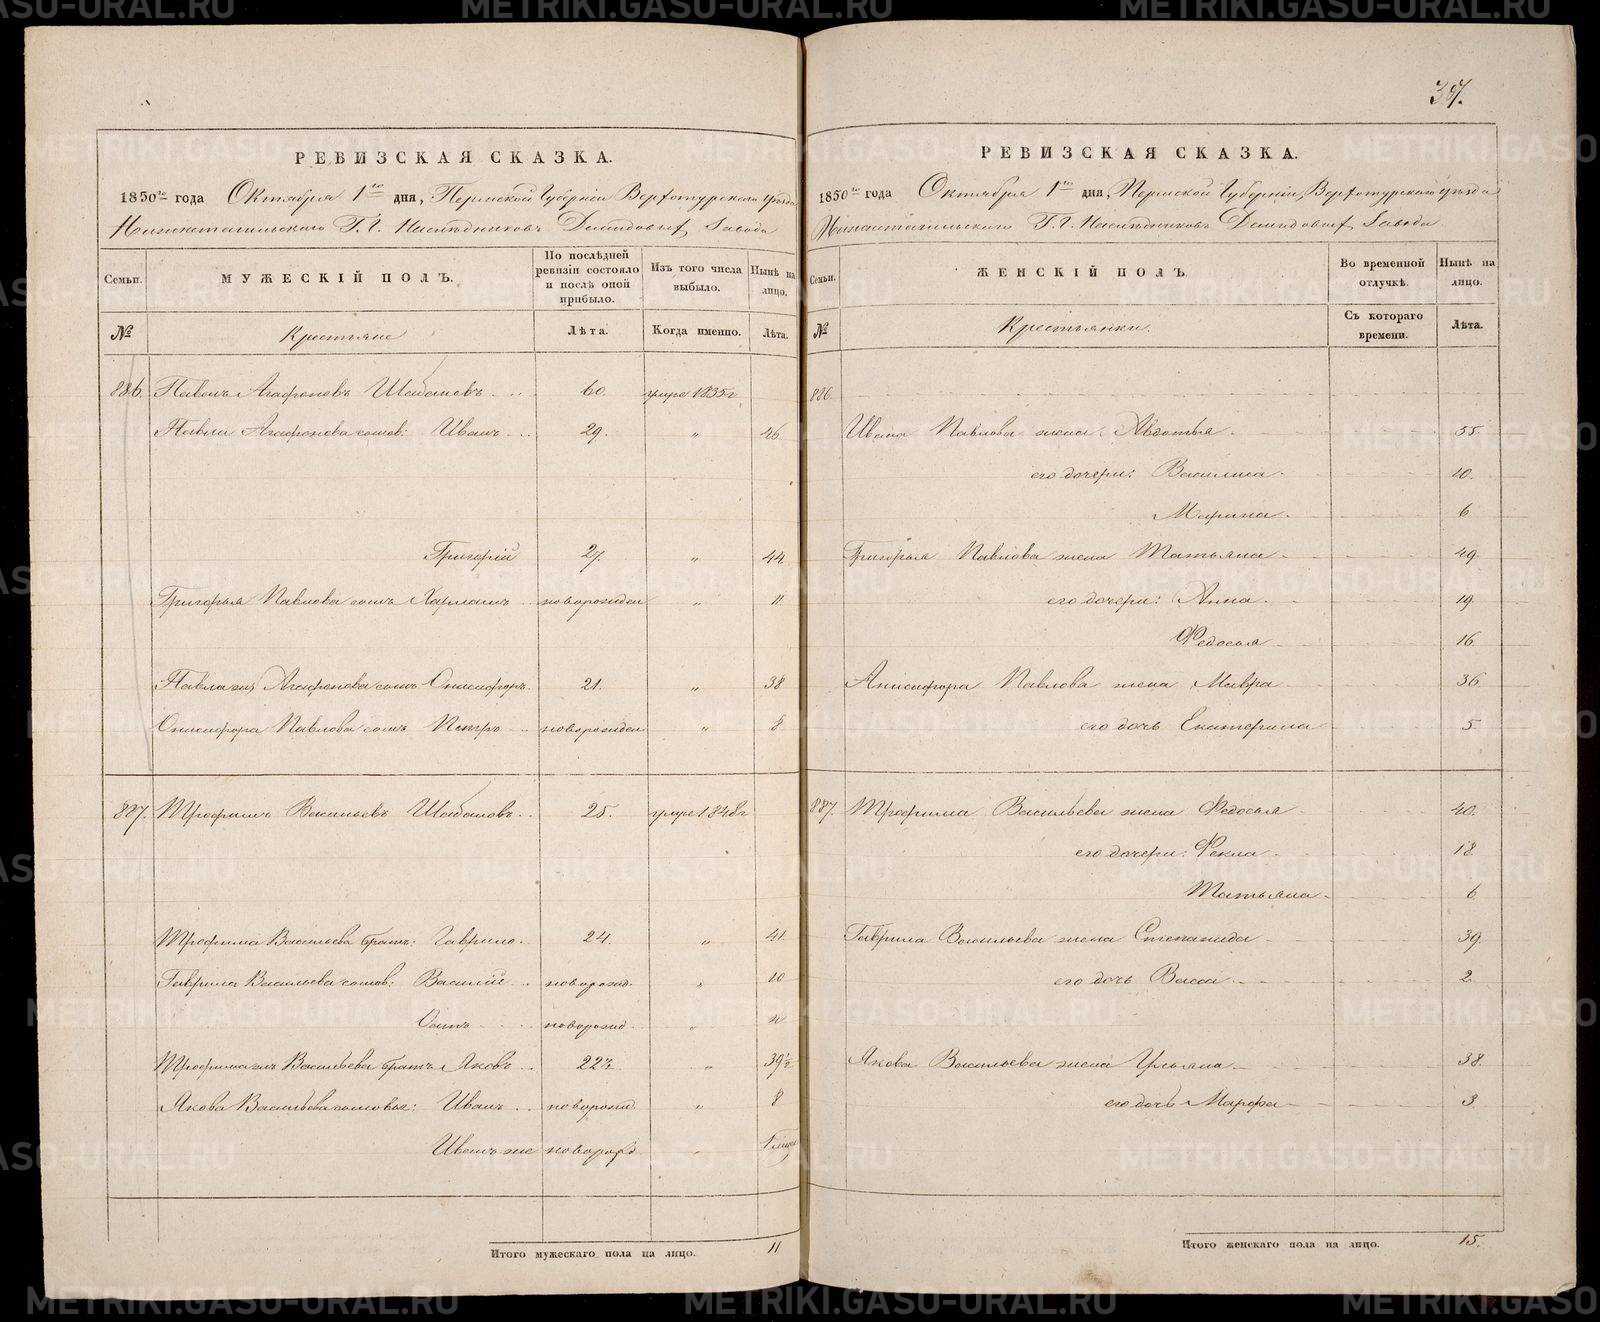 РЕВИЗСКАЯ СКАЗКА.
1850го года Октября 1го дня, Пермской Губерніи Верхотурскаго уѣзда
Нижнетагильскаго Г.Г. Наслѣдниковъ Демидовых Завода
Семьи.
МУЖЕСКІЙ ПОЛЪ.
По послѣдней ревизіи состояло и послѣ оной прибыло.
Изъ того числа выбыло.
Нынѣ на лицо.
№
Крестьяне
Лѣта.
Когда именно.
Лѣта.
886. Павелъ Агафоновъ Шабановъ 60. умре 1835г
Павла Агафонова сынов: Иванъ 29. „ 46
Григорій 27. „ 44
Григорья Павлова сынъ Харлампъ новорожден „ 11
Павла же Агафонова сынъ Онисифоръ 21. „ 38
Онисифора Павлова сынъ Петръ новорожден „ 8
887. Трофимъ Васильевъ Шабановъ 25. умре 1848г
Трофима Васильева братъ: Гаврило 24. „ 41
Гаврила Васильева сынов: Василій новорожд. „ 10
Осипъ новорожд „
Трофима же Васильева братъ Яковъ 22½ „ 39½
Якова Васильева сыновья: Иванъ новорожд „ 8
Иванъ же новорожд „
Итого мужескаго пола на лицо. 11
37.
РЕВИЗСКАЯ СКАЗКА.
1850го года Октября 1го дня, Пермской Губерніи, Верхотурскаго уѣзда
Нижнетагильскаго Г.Г. Наслѣдниковъ Демидовых Завода
Семьи.
ЖЕНСКІЙ ПОЛЪ
Во временной отлучкѣ.
Нынѣ на лицо.
№
Крестьянки.
Съ котораго времени.
Лѣта.
886
Ивана Павлова жена Авдотья 55
его дочери: Василиса 10.
Марина 6
Григорья Павлова жена Татьяна 49
его дочери: Анна 19
Федосья 16
Анисифора Павлова жена Мавра 36
его дочь Екатерина 5
887. Трофима Васильева жена Федосья 40.
его дочери: Фекла 18
Татьяна 6
Гаврила Васильева жена Степанида 39.
его дочь Васса 2
Якова Васильева жена Ульяна 38.
его дочь Марфа 3
Итого женскаго пола на лицо. 15.
METRIKI.GASO-URAL.RU